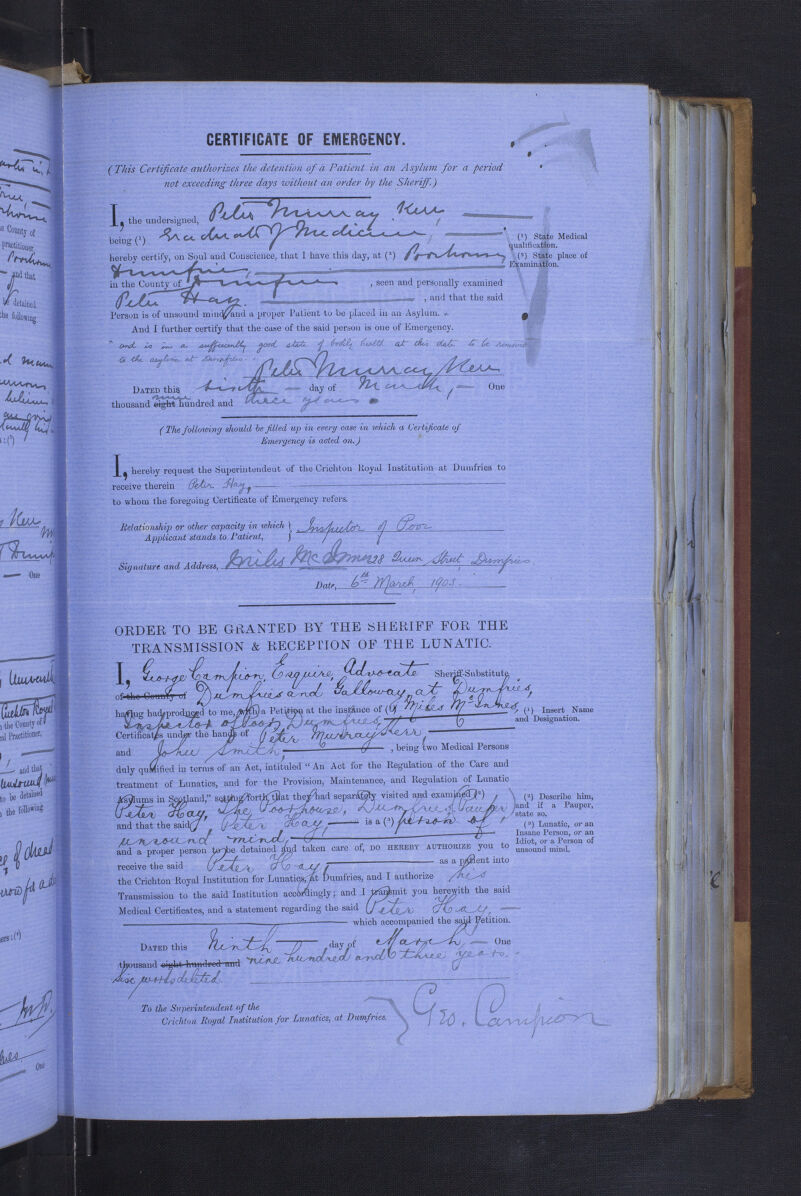 CERTIFICATE OF EMERGENCY.
(This Certificate authorizes the detention of a Patient in an Asylum for a period
not exceeding three days without an order by the Sheriff.)
I, the undersigned, Peter Murray Kerr,
being (¹) Graduate of Medicine,
(¹) State Medical
qualification.
hereby certify, on Soul and Conscience, that I have this day, at (²) Poorhouse
(²) State place of
Examination.
Dumfries,
in the County of Dumfries, seen and personally examined
Peter Hay. , and that the said
Person is of unsound mind, and a proper Patient to be placed in an Asylum.
And I further certify that the case of the said person is one of Emergency.
" and is in a sufficiently good state of bodily health at this date to be removed
to the asylum at Dumfries. "
Peter Murray Kerr
DATED this sixth day of March, One
thousand eight nine hundred and three years
(The following should be filled up in every case in which a Certificate of
Emergency is acted on.)
I, hereby request the Superintendent of the Crichton Royal Institution at Dumfries to
receive therein Peter Hay,
to whom the foregoing Certificate of Emergency refers.
Relationship or other capacity in which } Inspector of Poor
Applicant stands to Patient, }
Signature and Address, Miles McInnes 28 Queen Street Dumfries
Date, 6th March, 1903.
ORDER TO BE GRANTED BY THE SHERIFF FOR THE
TRANSMISSION & RECEPTION OF THE LUNATIC.
I, George Campion, Esquire, Advocate Sheriff-Substitute
of the County of Dumfries and Galloway, at Dumfries,
having had produced to me, with a Petition at the instance of (¹) Miles McInnes,
(¹) Insert Name
and Designation.
Inspector of Poor, Dumfries,
Certificates under the hands of Peter Murray Kerr,
and John Smith, , being two Medical Persons
duly qualified in terms of an Act, intituled "An Act for the Regulation of the Care and
treatment of Lunatics, and for the Provision, Maintenance, and Regulation of Lunatic
Asylums in Scotland," setting forth that they had separately visited and examined (²)
(²) Describe him,
and if a Pauper,
state so.
Peter Hay, The Poorhouse, Dumfries, Pauper
and that the said Peter Hay, is a (³) person of
(³) Lunatic, or an
Insane Person, or an
Idiot, or a Person of
unsound mind.
unsound mind,
and a proper person to be detained and taken care of, DO HEREBY AUTHORIZE you to
receive the said Peter Hay, as a patient into
the Crichton Royal Institution for Lunatics, at Dumfries, and I authorize his
Transmission to the said Institution accordingly; and I transmit you herewith the said
Medical Certificates, and a statement regarding the said Peter Hay
which accompanied the said Petition.
DATED this Ninth day of March, One
thousand eight hundred and nine hundred and three years.
Six words deleted.
To the Superintendent of the
Crichton Royal Institution for Lunatics, at Dumfries. }
Geo. Campion